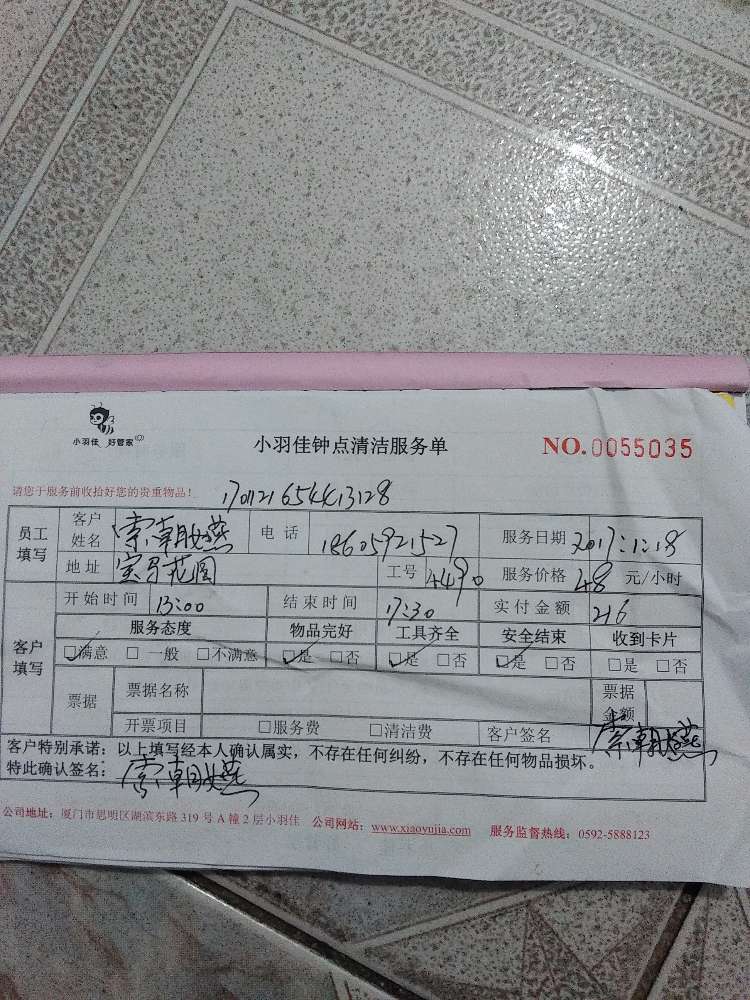 小羽佳 好管家
小羽佳钟点清洁服务单
NO.0055035
请您于服务前收拾好您的贵重物品!
员工填写 客户姓名 电话 18605921527 服务日期 2017:1:18
地址 工号 4490 服务价格 48 元/小时
客户填写 开始时间 13:00 结束时间 17:30 实付金额 216
服务态度 物品完好 工具齐全 安全结束 收到卡片
☑满意 □一般 □不满意 ☑是 □否 ☑是 □否 ☑是 □否 □是 □否
票据 票据名称 票据金额
开票项目 □服务费 □清洁费 客户签名
客户特别承诺:以上填写经本人确认属实,不存在任何纠纷,不存在任何物品损坏。
特此确认签名:
公司地址:厦门市思明区湖滨东路 319 号 A 幢 2 层小羽佳 公司网站:www.xiaoyujia.com 服务监督热线:0592-5888123